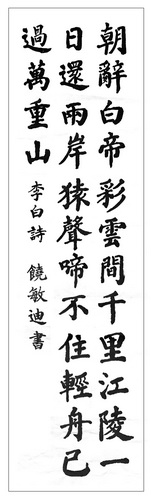 朝辭白帝彩雲間千里江陵一
日還兩岸猿聲啼不住輕舟已
過萬重山 李白詩 饒敏迪書